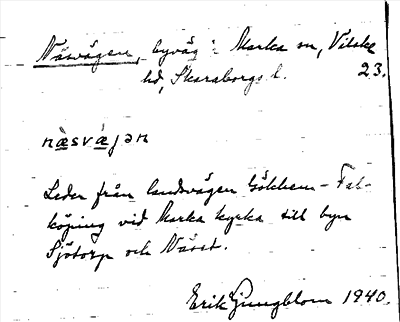 Näsvägen, byväg i Marka sn, Vilske
hd, Skaraborgs l. 23.
næ̀svæ̀jən
Leder från landsvägen Gökhem - Fal-
köping vid Marka kyrka till byn
Sjötorp och Näset.
Erik Ljungblom 1940.